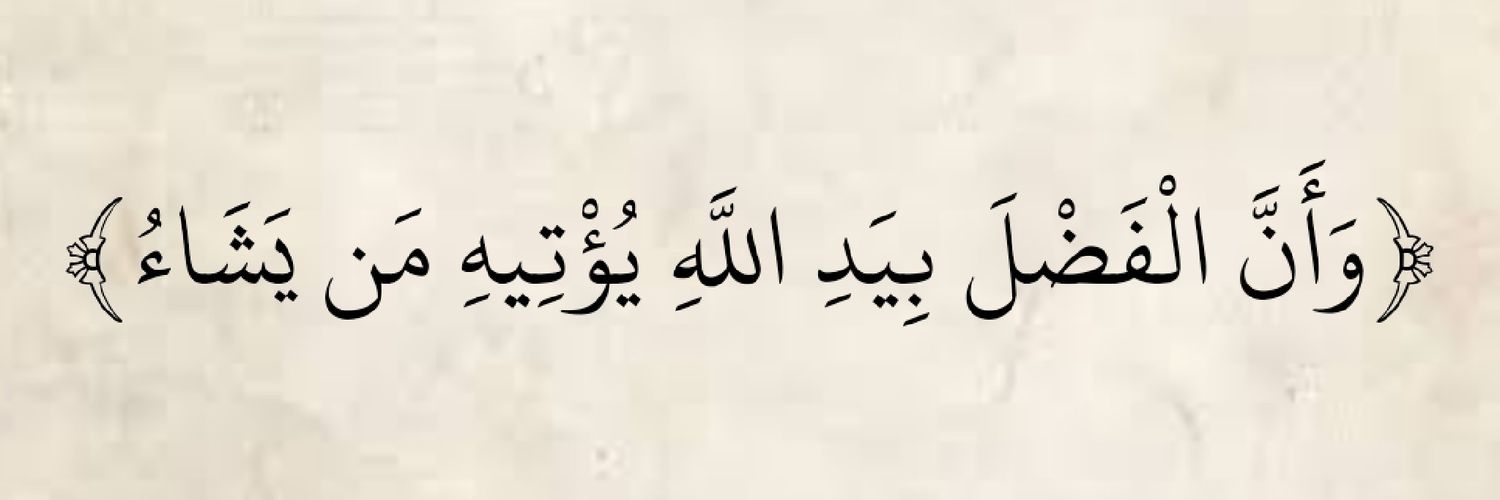 ﴿وَأَنَّ الْفَضْلَ بِيَدِ اللَّهِ يُؤْتِيهِ مَن يَشَاءُ﴾